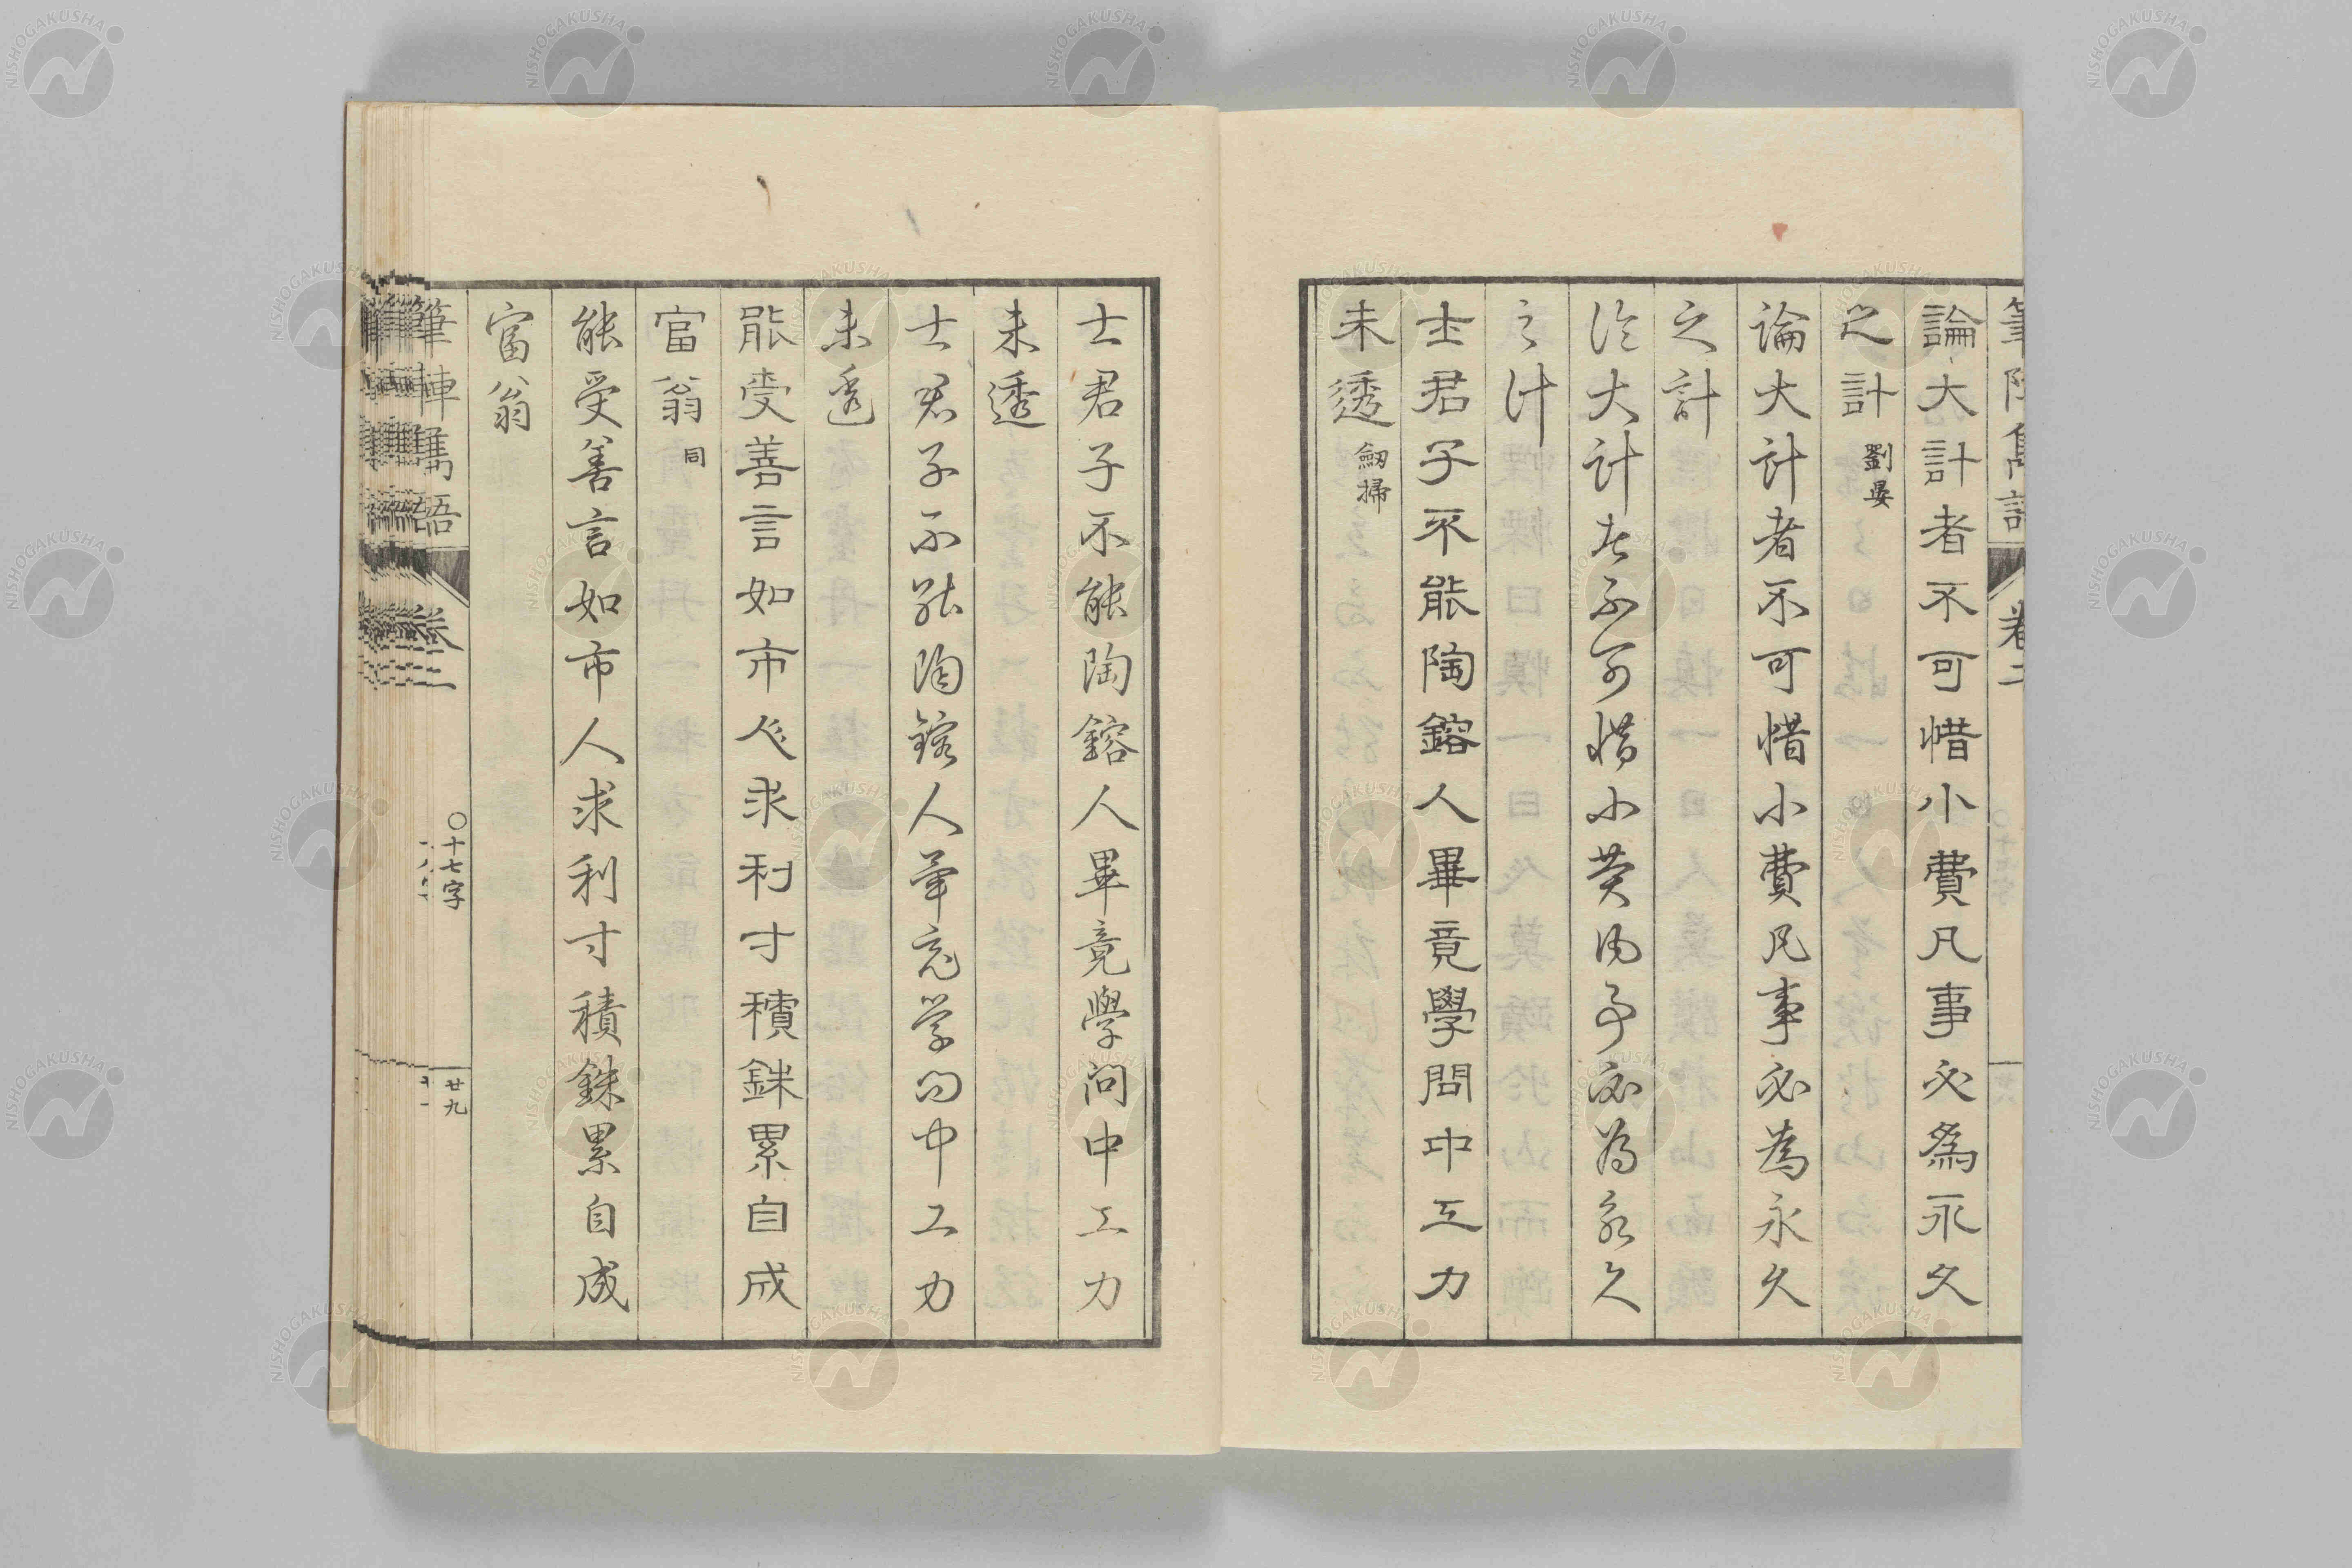 論大計者不可惜小費凡事必為永久
之計 劉晏
論大計者不可惜小費凡事必為永久
之計
論大計者不可惜小費凡事必為永久
之計
士君子不能陶鎔人畢竟學問中工力
未透 劒掃
士君子不能陶鎔人畢竟學問中工力
未透
士君子不能陶鎔人畢竟学问中工力
未透
能受善言如市人求利寸積銖累自成
富翁 同
能受善言如市人求利寸積銖累自成
富翁
筆陣雋語 卷二 〇十七字 廿九
NISHOGAKUSHA